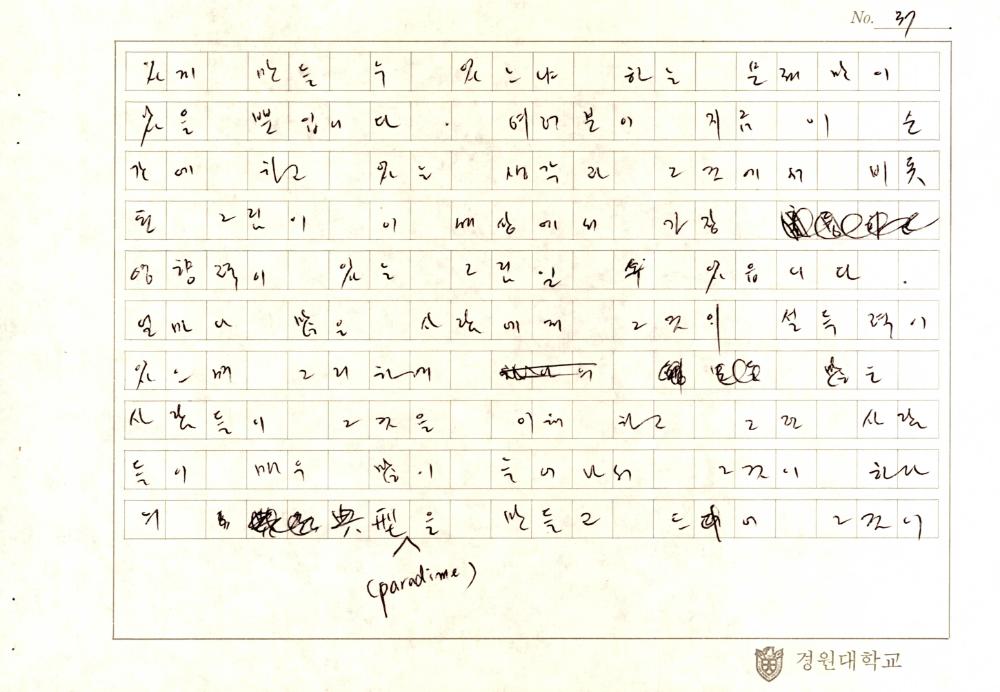 No. 37
있게 만들 수 있느냐 하는 문제만이
있을 뿐입니다. 여러분이 지금 이 순
간에 하고 있는 생각과 그것에서 비롯
된 그림이 이 세상에서 가장
영향력이 있는 그림일 수 있읍니다.
얼마나 많은 사람에게 그것의 설득력이
있으며 그러하게 많은
사람들이 그것을 이해하고 그런 사람
들이 매우 많이 늘어나서 그것이 하나
의 典型을 만들고 드디어 그것이
(paradime)
경원대학교